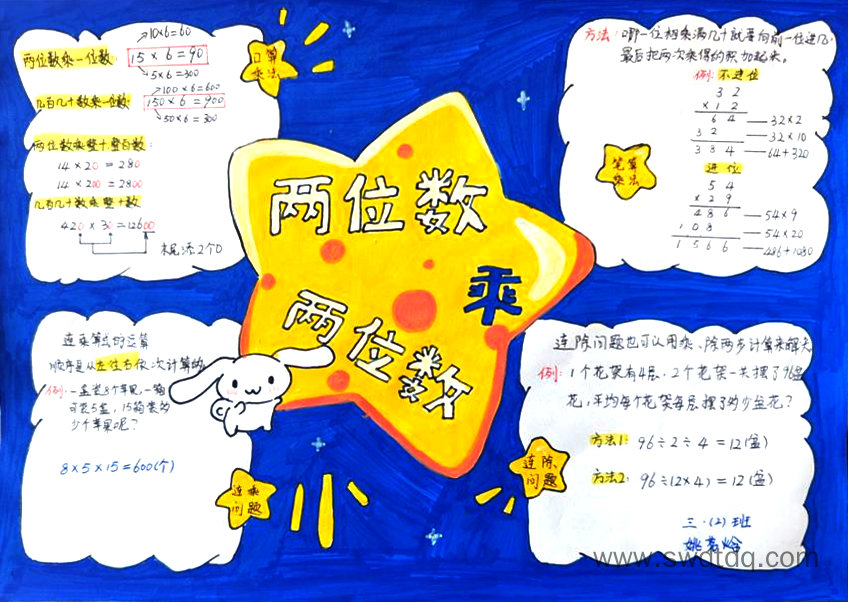 两位数
乘
两位数
口算
乘法
10×6=60
两位数乘一位数:
15×6=90
5×6=300
100×6=600
几百几十数乘一位数:
150×6=900
50×6=300
两位数乘整十、整百数:
14×20=280
14×200=2800
几百几十数乘整十数
420×30=12600
末尾添2个0
方法:哪一位相乘满几十就要向前一位进几,
最后把两次乘得的积加起来。
例:不进位
32
×12
64 —— 32×2
32 —— 32×10
384 —— 64+320
笔算
乘法
进位
54
×29
486 —— 54×9
108 —— 54×20
1566 —— 486+1080
连乘算式的运算
顺序是从左往右依次计算的
例:一盒装8个苹果,一箱
可装5盒,15箱装多
少个苹果呢?
8×5×15=600(个)
连乘
问题
连除问题也可以用乘、除两步计算来解决
例:1个花架有4层,2个花架一共摆了96盆
花,平均每个花架每层摆了多少盆花?
方法1:96÷2÷4=12(盆)
方法2:96÷(2×4)=12(盆)
连除
问题
三·(2)班
www.swdtdq.com